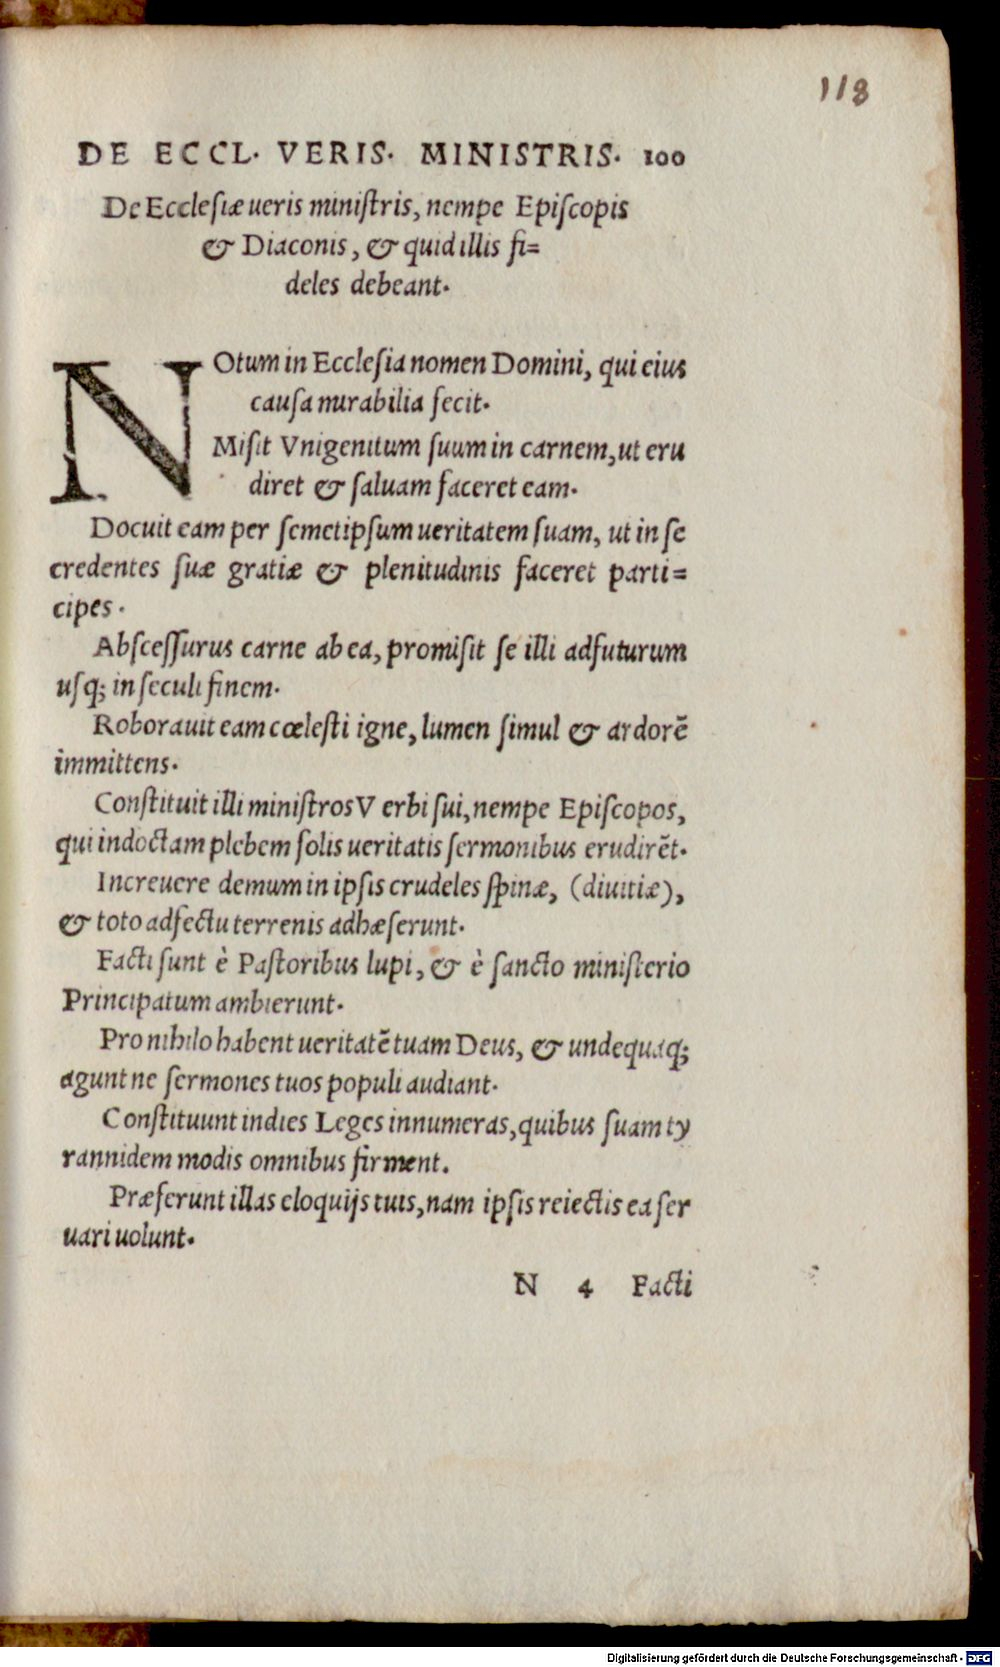 118
DE ECCL. VERIS. MINISTRIS. 100
De Ecclesiæ ueris miniſtris, nempe Epiſcopis
& Diaconis, & quid illis fi=
deles debeant.
NOtum in Eccleſia nomen Domini, qui eius
cauſa mirabilia fecit.
Miſit Vnigenitum ſuum in carnem, ut eru
diret & ſaluam faceret eam.
Docuit eam per ſemetipſum ueritatem ſuam, ut in ſe
credentes ſuæ gratiæ & plenitudinis faceret parti=
cipes.
Abſceſſurus carne ab ea, promiſit ſe illi adfuturum
uſq; in ſeculi finem.
Roborauit eam cœleſti igne, lumen ſimul & ardorē
immittens.
Conſtituit illi miniſtros Verbi ſui, nempe Epiſcopos,
qui indoctam plebem ſolis ueritatis ſermonibus erudirēt.
Increuere demum in ipſis crudeles ſpinæ, (diuitiæ),
& toto adfectu terrenis adhæſerunt.
Facti ſunt è Paſtoribus lupi, & è ſancto miniſterio
Principatum ambierunt.
Pro nihilo habent ueritatē tuam Deus, & undequaq;
agunt ne ſermones tuos populi audiant.
Conſtituunt indies Leges innumeras, quibus ſuam ty
rannidem modis omnibus firment.
Præferunt illas eloquijs tuis, nam ipſis reiectis ea ſer
uari uolunt.
N 4 Facti
Digitalisierung gefördert durch die Deutsche Forschungsgemeinschaft - DFG